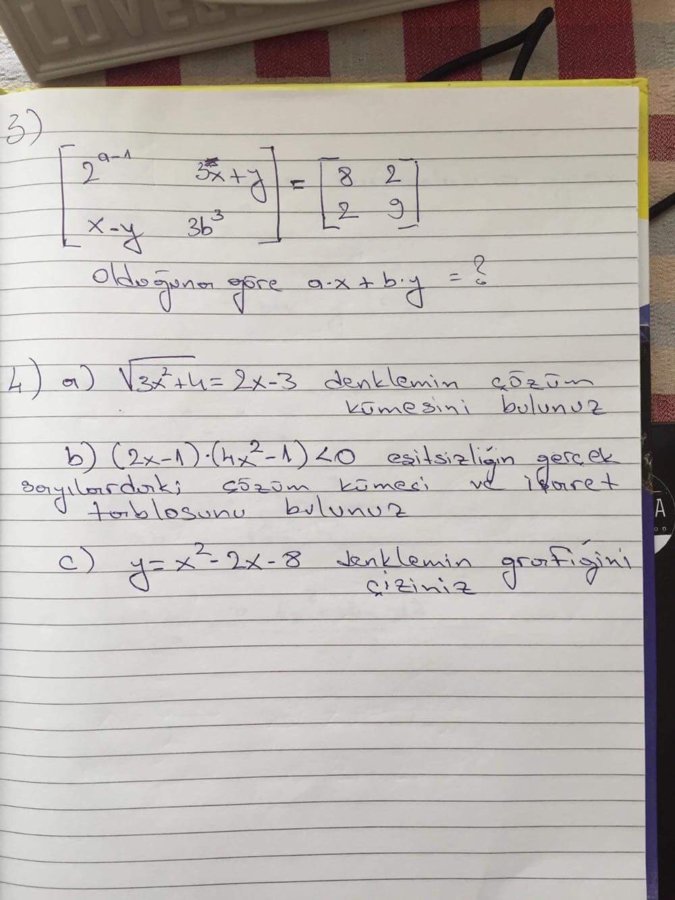 LOVE
3)
[ 2^(a-1) 3x+y ] = [ 8 2 ]
[ x-y 3b^3 ] [ 2 9 ]
Olduğuna göre a·x+b·y = ?
4) a) √(3x²+4) = 2x-3 denklemin çözüm
kümesini bulunuz
b) (2x-1)·(4x²-1)<0 eşitsizliğin gerçek
sayılardaki çözüm kümesi ve işaret
tablosunu bulunuz
c) y=x²-2x-8 denklemin grafiğini
çiziniz
A